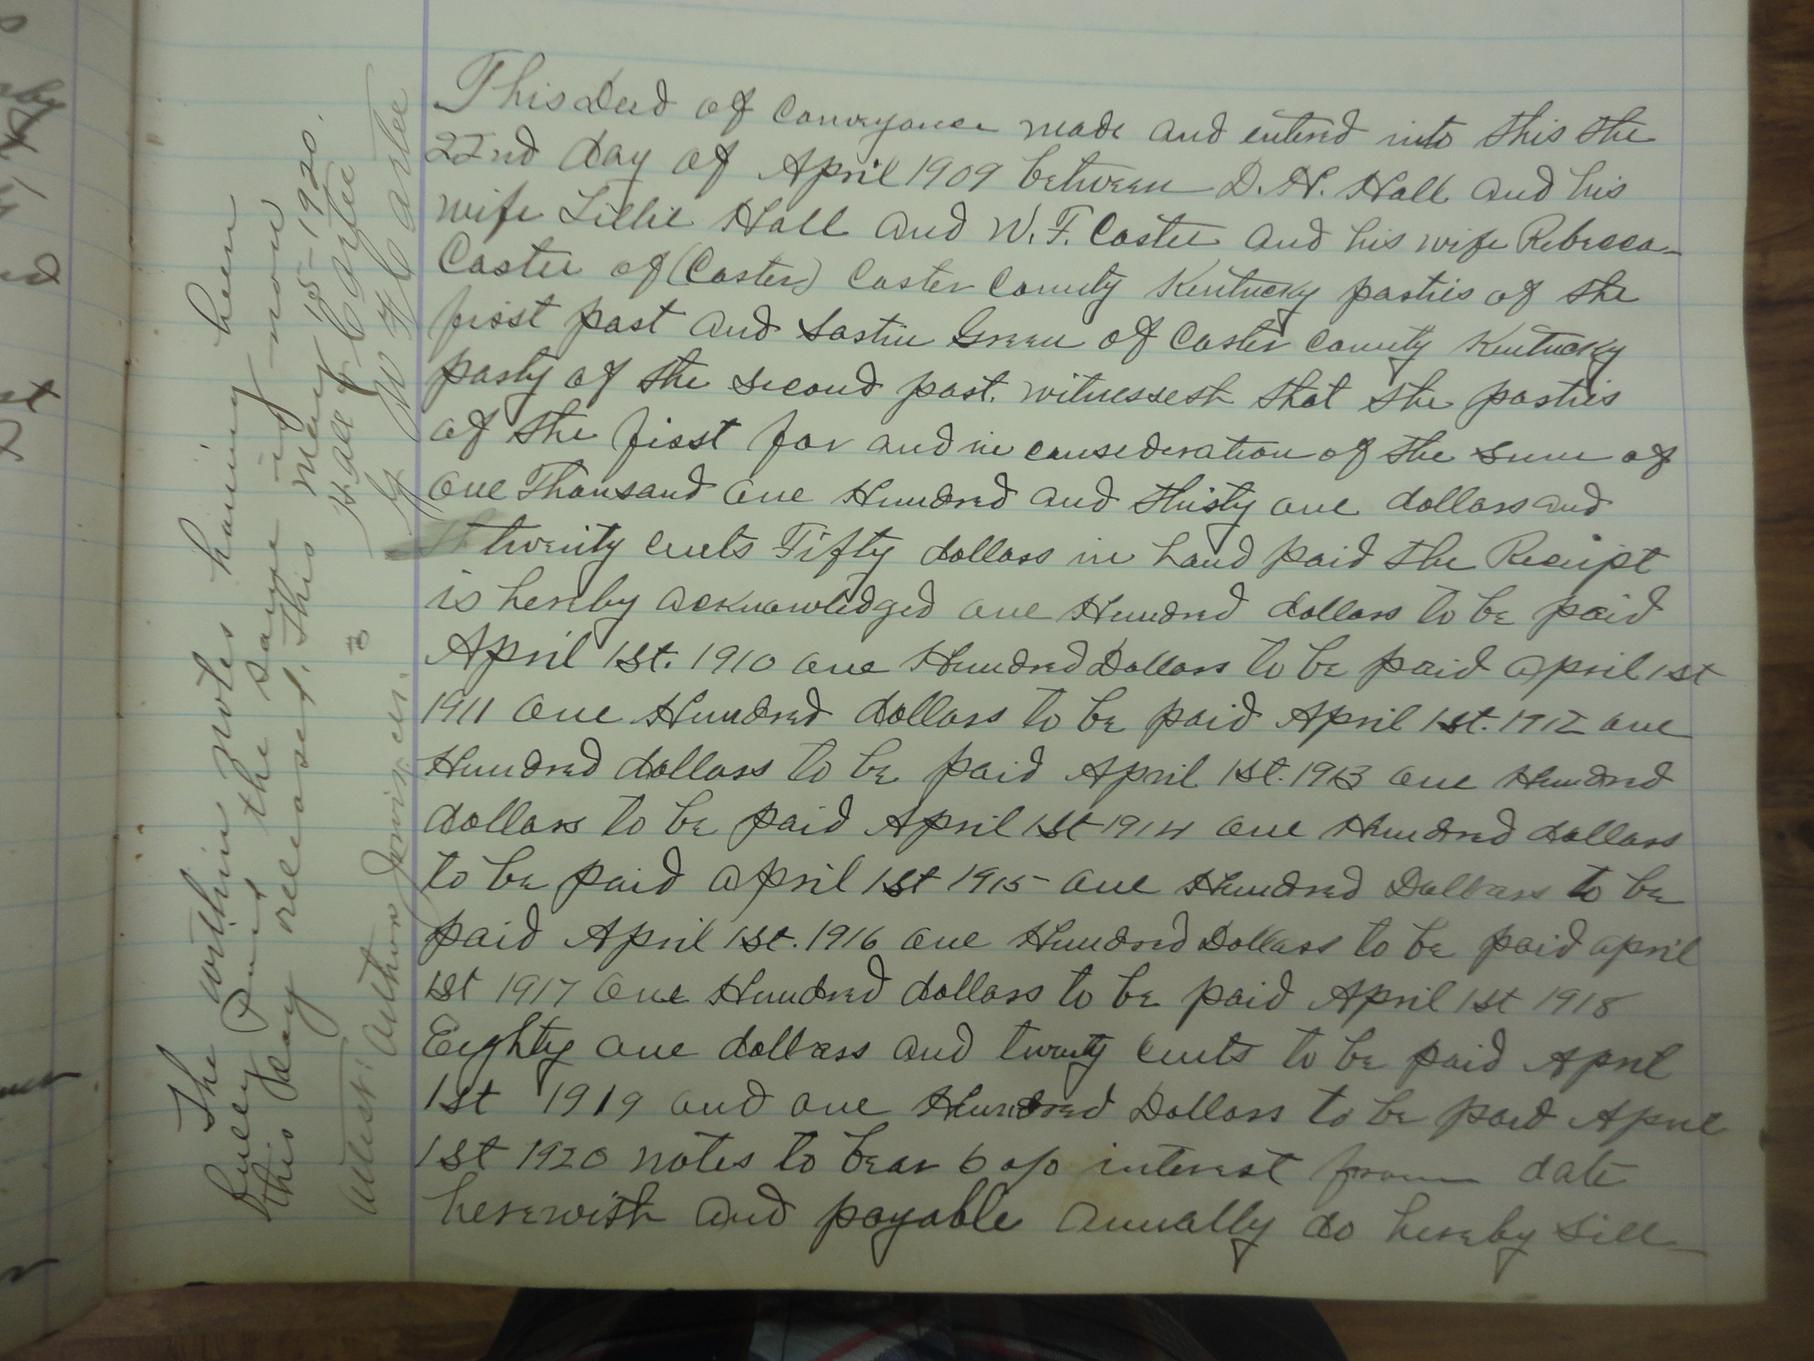 This Deed of Conveyance made and entered into this the
22nd day of April 1909 between D. H. Hall and his
wife Lillie Hall and W. F. Carter and his wife Rebecca
Carter of (Carter) Carter County Kentucky parties of the
first part and Green of Carter County Kentucky
party of the second part. witnesseth that the parties
of the first for and in consideration of the sum of
one Thousand one Hundred and thirty one dollars and
twenty cents Fifty dollars in hand paid the Receipt
is hereby acknowledged one Hundred dollars to be paid
April 1st. 1910 one Hundred Dollars to be paid April 1st
1911 one Hundred dollars to be paid April 1st. 1912 one
Hundred dollars to be paid April 1st. 1913 one Hundred
dollars to be paid April 1st 1914 one Hundred dollars
to be paid April 1st 1915 one Hundred Dollars to be
paid April 1st. 1916 one Hundred Dollars to be paid april
1st 1917 one Hundred dollars to be paid April 1st 1918
Eighty one dollars and twenty cents to be paid April
1st 1919 and one Hundred Dollars to be paid April
1st 1920 notes to bear 6 o/o interest from date
herewith and payable anually do hereby sell
The within notes having been
fully Paid the same is now
this day released. This May 15-1920.
Hall & Carter
By W F Carter
Attest: Arthur